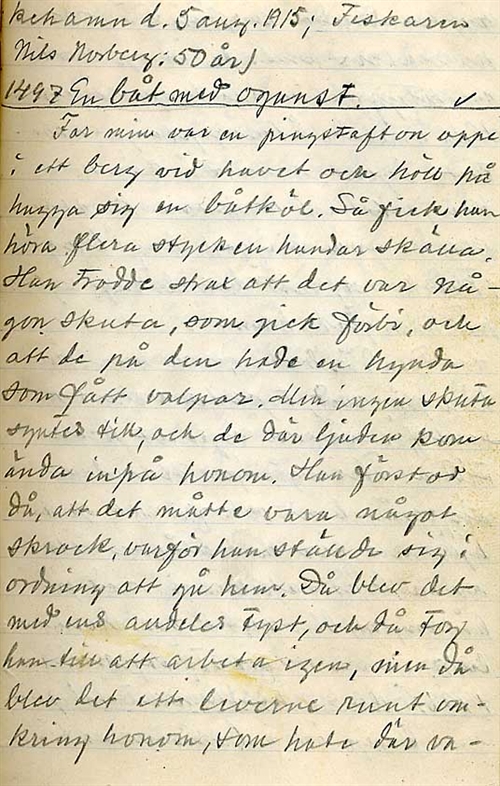 kehamn d. 5 aug. 1915; Fiskaren
Nils Norberg: 50 år)
1497 En båt med ogunst. ✓
Far min var en pingstafton oppe
i ett berg vid havet och höll på
hugga sig en båtköl. Så fick han
höra flera stycken hundar skälla.
Han trodde strax att det var nå-
gon skuta, som gick förbi, och
att de på den hade en hynda
som fått valpar. Men ingen skuta
syntes till, och de där ljuden kom
ända inpå honom. Han förstod
då, att det måtte vara något
skrock, varför han ställde sig i
ordning att gå hem. Då blev det
med ens alldeles tyst, och då tog
han till att arbeta igen, men då
blev det ett leverne runt om-
kring honom, som hade där va-